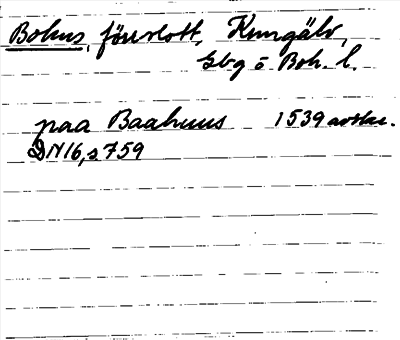 Bohus, f. öre slott, Kungälv,
Gbg o Boh. l.
paa Baahuus 1539 avskr.
DN16, s 759